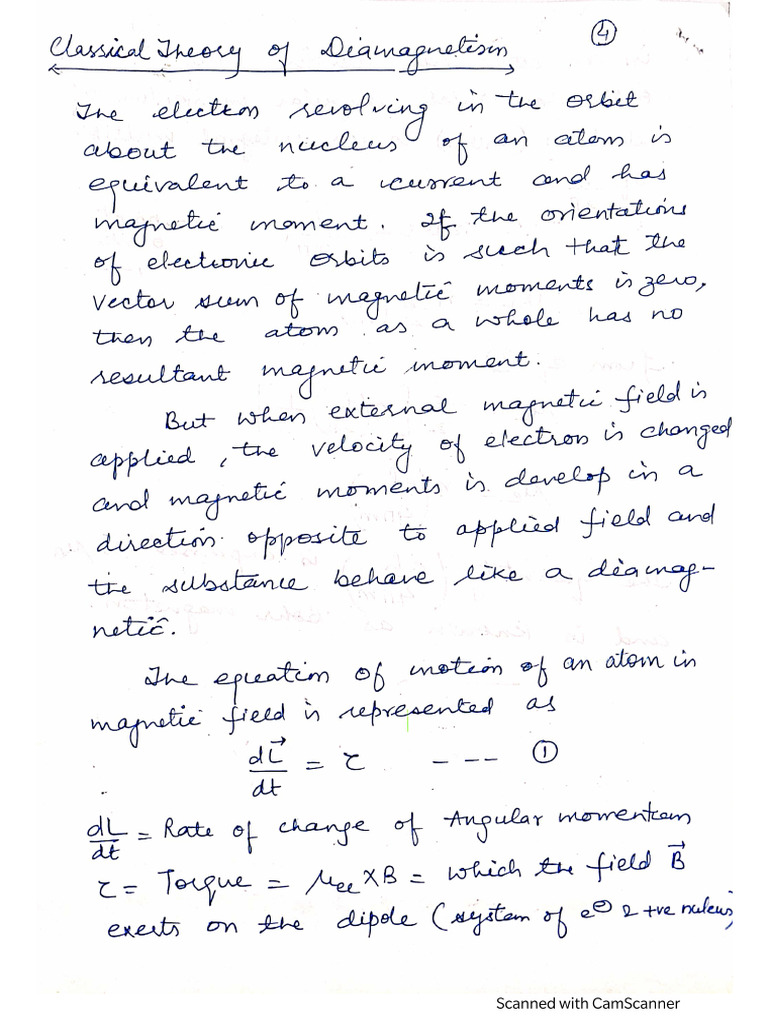 ④
Classical Theory of Diamagnetism
The electron revolving in the orbit
about the nucleus of an atom is
equivalent to a current and has
magnetic moment. If the orientations
of electronic orbits is such that the
vector sum of magnetic moments is zero,
then the atom as a whole has no
resultant magnetic moment.
But when external magnetic field is
applied, the velocity of electron is changed
and magnetic moments is develop in a
direction opposite to applied field and
the substance behave like a diamag-
netic.
The equation of motion of an atom in
magnetic field is represented as
dL⃗/dt = τ --- ①
dL/dt = Rate of change of Angular momentum
τ = Torque = μel × B = which the field B⃗
exerts on the dipole (system of e⊖ & +ve nuleus)
Scanned with CamScanner